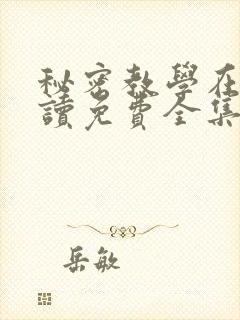 秘密教學在
讀免費全集
岳敏